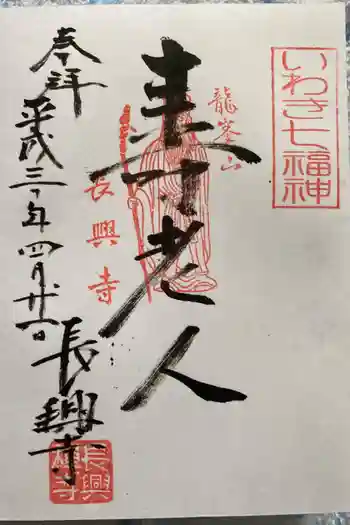 いわき七福神
龍峯山
寿老人
長興寺
奉拝
平成三十年四月廿一日
長興寺
長興禅寺